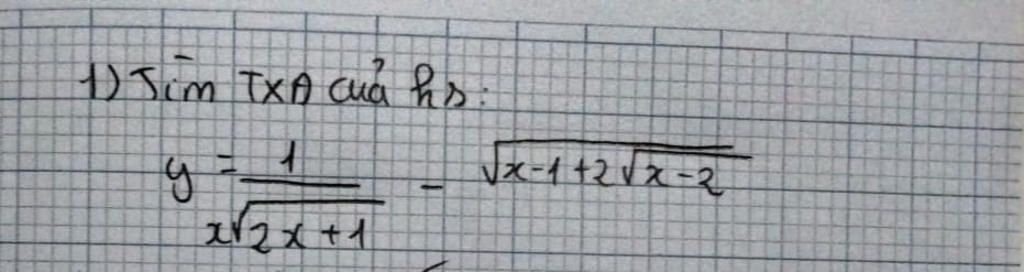 1) Tìm TXĐ của hs:
y = 1/(x√(2x+1)) - √(x-1+2√(x-2))